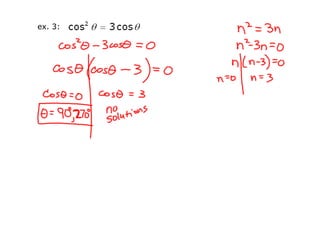 ex. 3: cos² θ = 3 cos θ
cos²θ - 3cosθ = 0
cosθ(cosθ - 3) = 0
cosθ = 0 cosθ = 3
θ = 90°, 270° no solutions
n² = 3n
n² - 3n = 0
n(n-3) = 0
n=0 n = 3